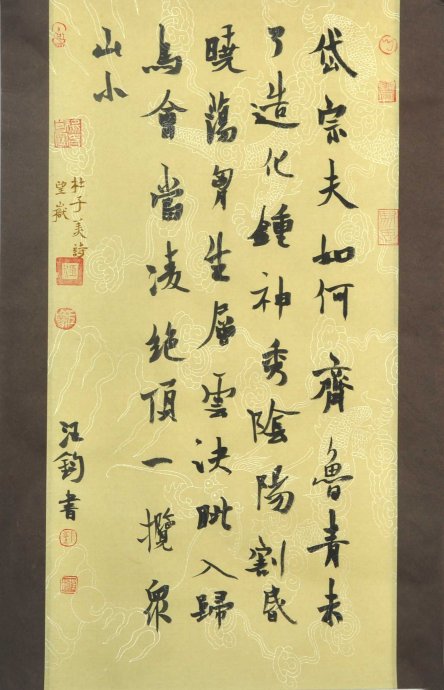 岱宗夫如何齊魯青未
了造化鍾神秀陰陽割昏
曉蕩胷生層雲決眦入歸
鳥會當凌絕頂一攬眾
山小
杜子美詩
望嶽
汪鈞書